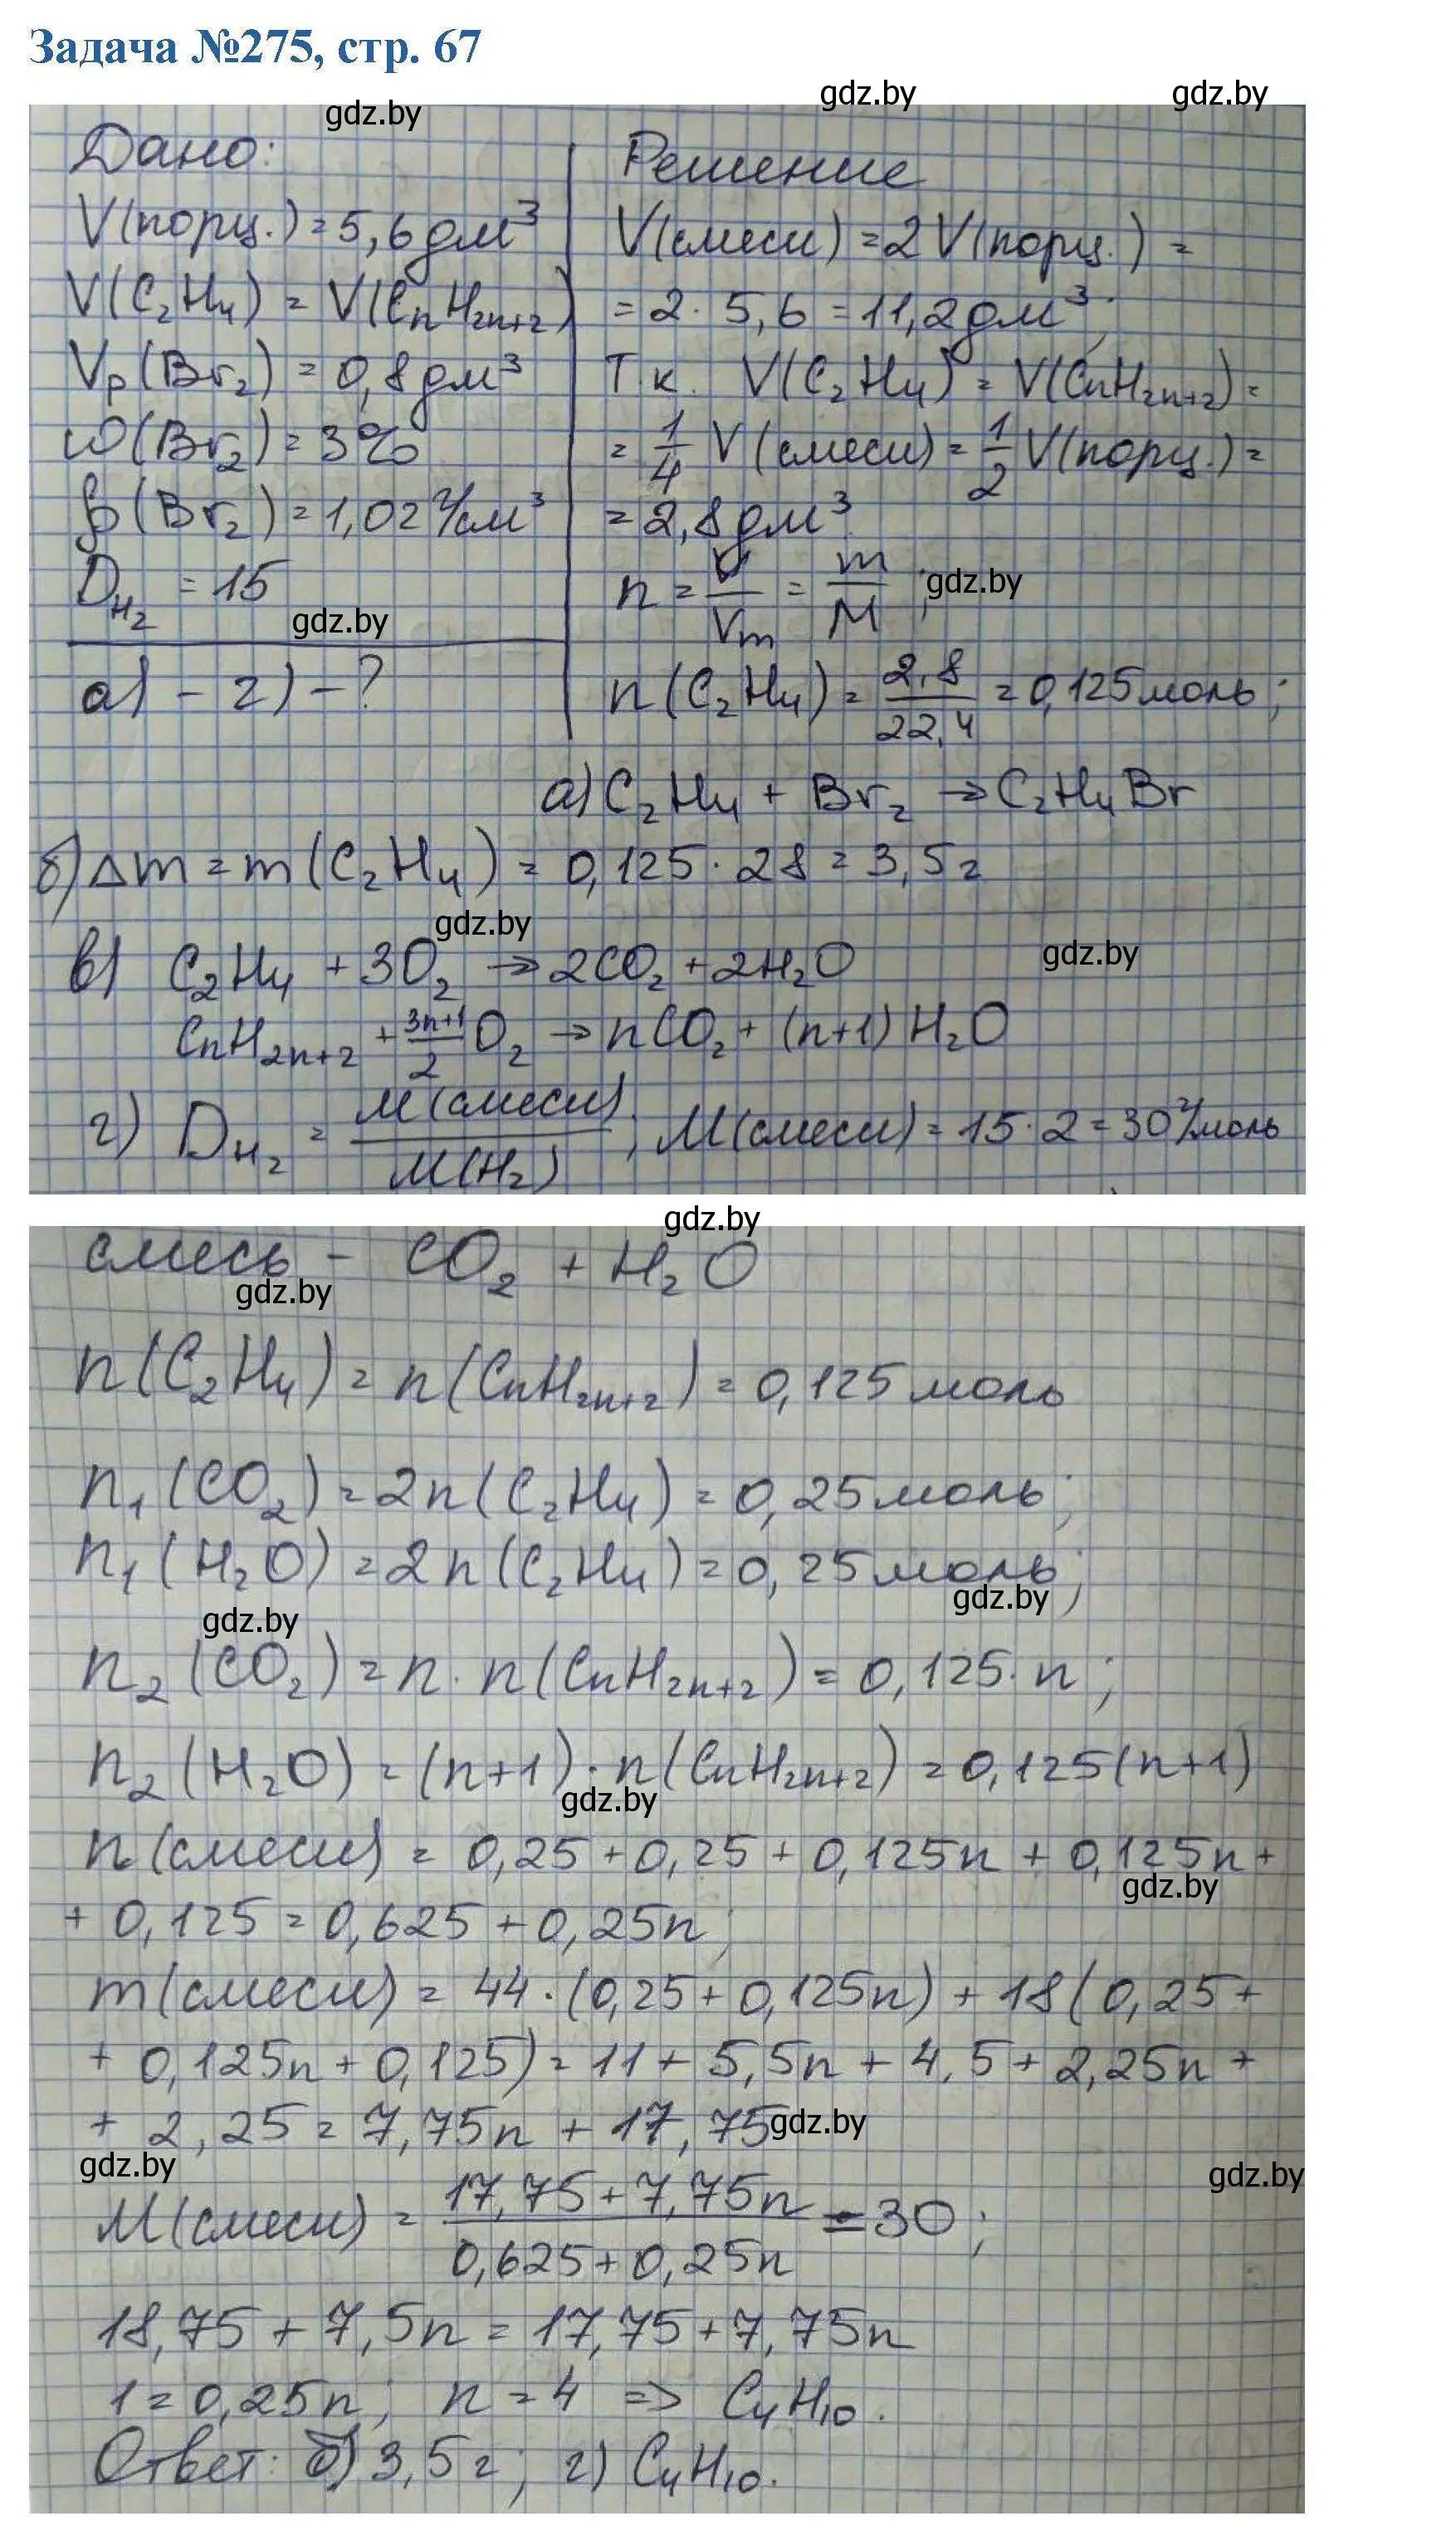 Задача №275, стр. 67
gdz.by
gdz.by
gdz.by
Дано:
V(порц.) = 5,6 дм³
V(C₂H₄) = V(CₙH₂ₙ₊₂)
Vₚ(Br₂) = 0,8 дм³
ω(Br₂) = 3%
ρ(Br₂) = 1,02 г/см³
D_H₂ = 15
gdz.by
а) - г) - ?
Решение
V(смеси) = 2 V(порц.) =
= 2 · 5,6 = 11,2 дм³;
Т к. V(C₂H₄) = V(CₙH₂ₙ₊₂) =
= 1/4 V(смеси) = 1/2 V(порц.) =
= 2,8 дм³
n = V/Vm = m/M ;
gdz.by
n(C₂H₄) = 2,8/22,4 = 0,125 моль;
а) C₂H₄ + Br₂ → C₂H₄Br
б) Δm = m(C₂H₄) = 0,125 · 28 = 3,5 г
gdz.by
gdz.by
в) C₂H₄ + 3O₂ → 2CO₂ + 2H₂O
CₙH₂ₙ₊₂ + (3n+1)/2 O₂ → nCO₂ + (n+1) H₂O
г) D_H₂ = M(смеси)/M(H₂) ; M(смеси) = 15 · 2 = 30 г/моль
gdz.by
смесь - CO₂ + H₂O
gdz.by
n(C₂H₄) = n(CₙH₂ₙ₊₂) = 0,125 моль
n₁(CO₂) = 2n(C₂H₄) = 0,25 моль;
n₁(H₂O) = 2n(C₂H₄) = 0,25 моль;
gdz.by
gdz.by
n₂(CO₂) = n · n(CₙH₂ₙ₊₂) = 0,125 · n;
n₂(H₂O) = (n+1) · n(CₙH₂ₙ₊₂) = 0,125(n+1)
gdz.by
n(смеси) = 0,25 + 0,25 + 0,125n + 0,125n +
gdz.by
+ 0,125 = 0,625 + 0,25n;
m(смеси) = 44 · (0,25 + 0,125n) + 18(0,25 +
+ 0,125n + 0,125) = 11 + 5,5n + 4,5 + 2,25n +
+ 2,25 = 7,75n + 17,75
gdz.by
gdz.by
gdz.by
M(смеси) = (17,75 + 7,75n)/(0,625 + 0,25n) = 30;
18,75 + 7,5n = 17,75 + 7,75n
1 = 0,25n; n = 4 => C₄H₁₀.
Ответ: б) 3,5 г; г) C₄H₁₀.